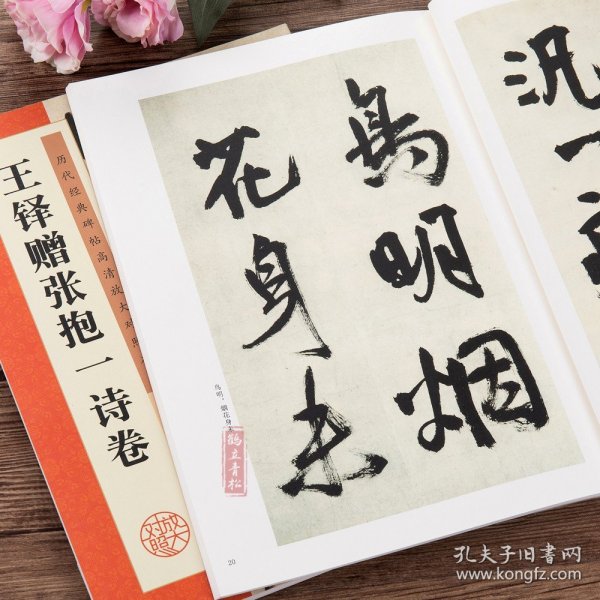 王铎赠张抱一诗卷
历代经典碑帖高清放大对照本
放大
对照
鸟明烟
花身未
鸟明，烟花身未
20
汎
鹤立青松
孔夫子旧书网
www.kongfz.com